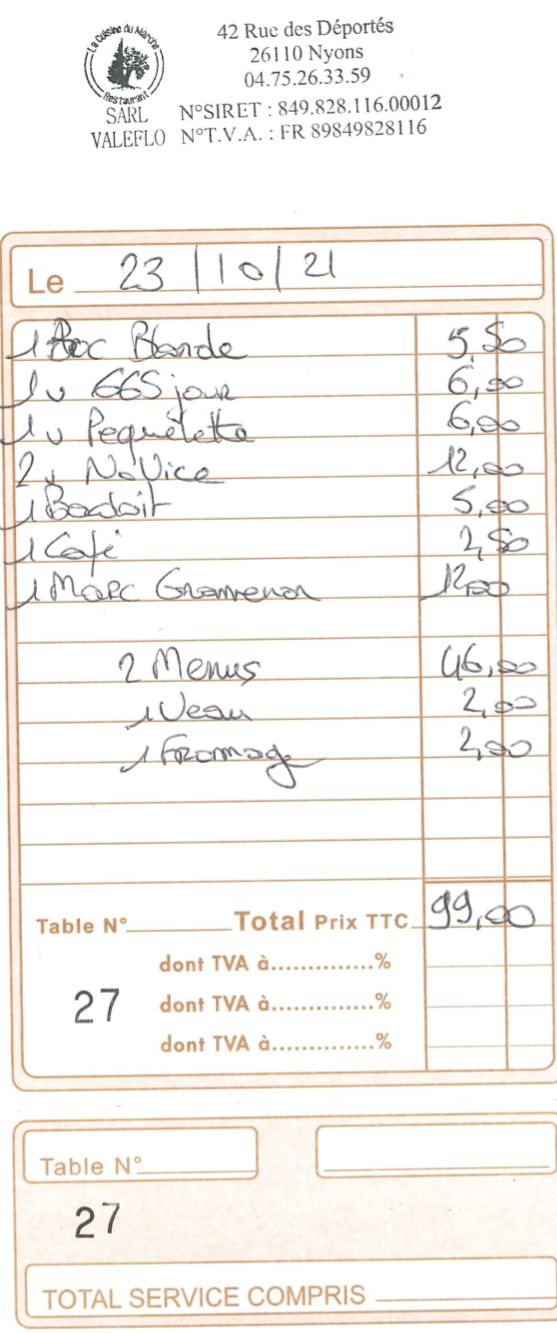 La Cuisine du Marché
Restaurant
SARL
VALEFLO
42 Rue des Déportés
26110 Nyons
04.75.26.33.59
N°SIRET : 849.828.116.00012
N°T.V.A. : FR 89849828116
Le 23/10/21
1 Blonde 5,50
1 v 6,00
1 v 6,00
2 v Novice 12,00
1 Badoit 5,00
1 Café 2,50
1 Marc Gramenon 12,00
2 Menus 46,00
1 Veau 2,00
1 Fromage 2,00
Table N° Total Prix TTC 99,00
dont TVA à..............%
27 dont TVA à..............%
dont TVA à..............%
Table N°
27
TOTAL SERVICE COMPRIS